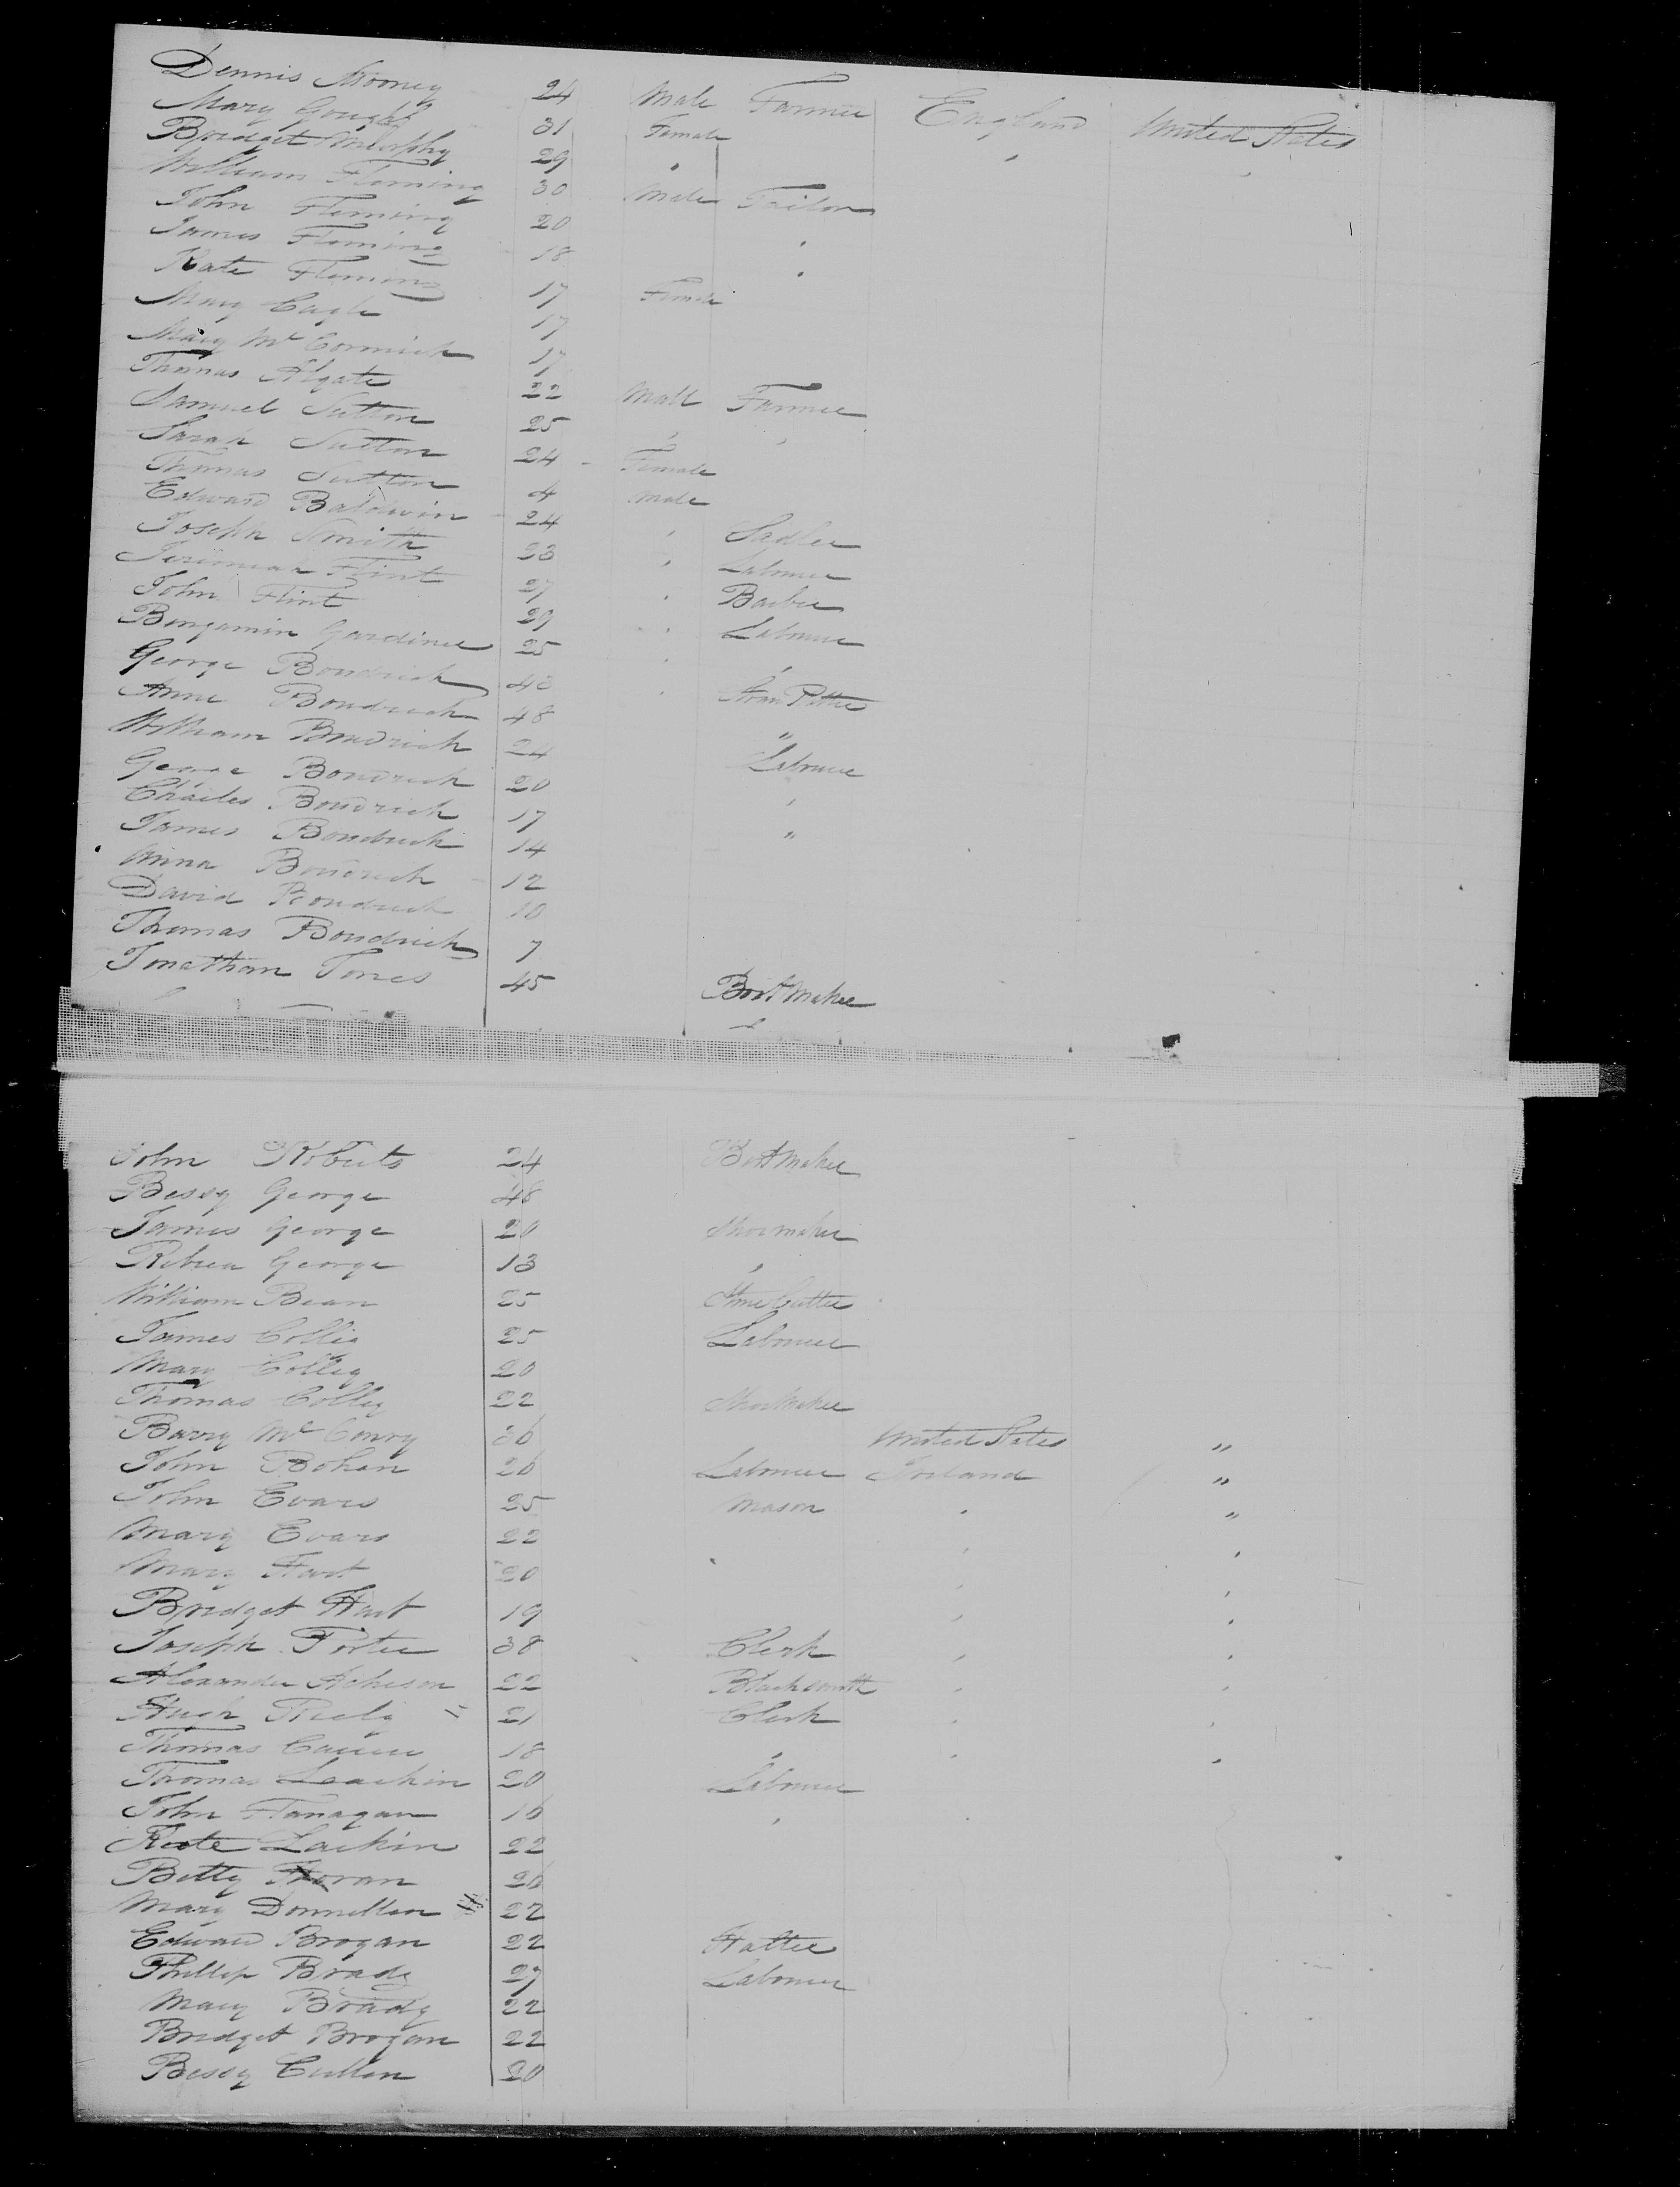 Dennis Mooney 24 Male Farmer England United States
Mary Gough 31 Female
Bridget Murphy 29 " " "
William Fleming 30 Male Tailor
John Fleming 20 "
James Fleming 18 "
Kate Fleming 17 Female
Mary Cagle 17
Mary McCormick 17
Thomas Algate 22 Male Farmer
Samuel Sutton 25 " "
Sarah Sutton 24 Female
Thomas Sutton 4 Male
Edward Baldwin 24 " Sadler
Joseph Smith 23 " Labourer
Jeremiah Flint 27 " Barber
John Flint 29 " Labourer
Benjamin Gardiner 25 " "
George Boudrich 48 "
Anne Boudrich 48 "
William Boudrich 24 Labourer
George Boudrich 20 "
Charles Boudrich 17 "
James Boudrich 14
Anna Boudrich 12
David Boudrich 10
Thomas Boudrich 7
Jonathan Jones 45 Boot Maker
John Roberts 24 Boot Maker
Bessy George 48
James George 20 Shoemaker
Rebeca George 13 "
William Bean 25 Stone Cutter
James Colley 25 Labourer
Mary Colley 20
Thomas Colley 22 Shoemaker
Barry Mc Conry 36 United States "
John Bohan 26 Labourer Ireland "
John Evars 25 Mason " "
Mary Evars 22 " "
Mary Hart 20 " "
Bridget Hart 19 " "
Joseph Porter 38 Clerk " "
Alexander Acheson 22 Blacksmith " "
Hugh 21 Clerk " "
Thomas 18 " " "
Thomas Leackin 20 Labourer
John Flanagan 16 "
Kate Lackin 22
Betty Horan 26
Mary Donnellan 22
Edward Brogan 22 Hatter
Phillip Brady 27 Labourer
Mary Brady 22
Bridget Brogan 22
Bessy Cullen 20